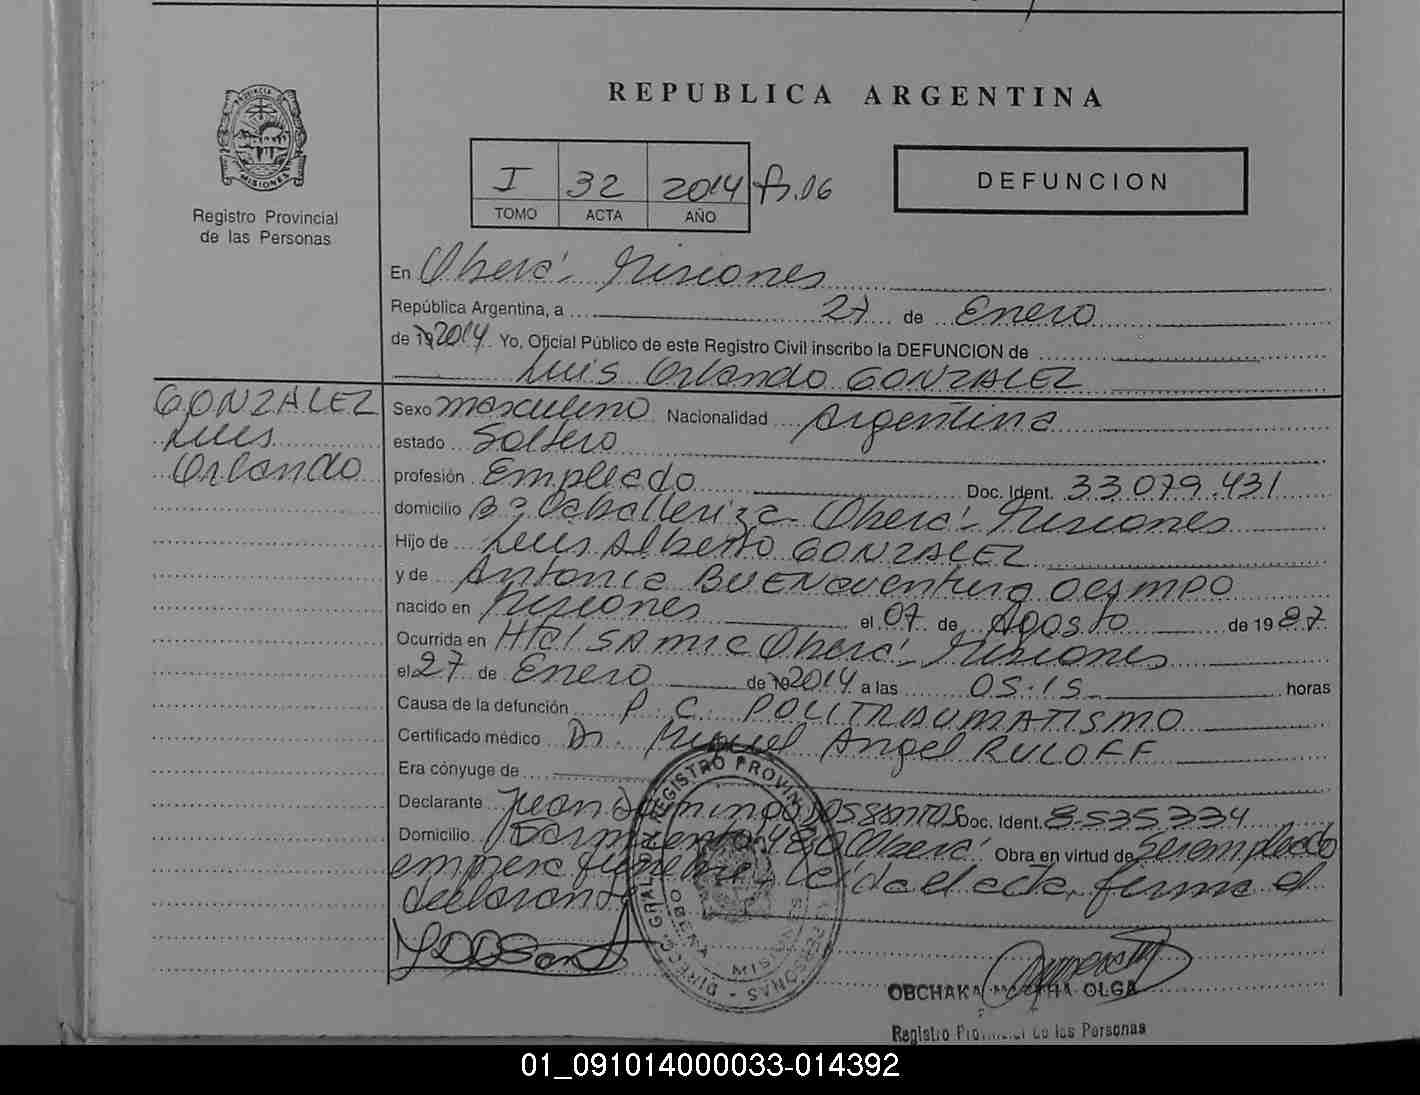 REPUBLICA ARGENTINA
PROVINCIA DE MISIONES
Registro Provincial
de las Personas
I 32 2014 fs. 06
TOMO ACTA AÑO
DEFUNCION
En Oberá - Misiones
República Argentina, a 27 de Enero
de 19 2014 Yo, Oficial Público de este Registro Civil inscribo la DEFUNCION de
Luis Orlando GONZALEZ
GONZALEZ
Luis
Orlando
Sexo masculino Nacionalidad Argentina
estado Soltero
profesión Empleado Doc. Ident. 33.079.431
domicilio Bº Caballeriza - Oberá - Misiones
Hijo de Luis Alberto GONZALEZ
y de Antonia BUENaventura OCAMPO
nacido en Misiones el 07 de Agosto de 1987
Ocurrida en Htal SAMIC Oberá - Misiones
el 27 de Enero de 19 2014 a las 05:15 horas
Causa de la defunción P. C. POLITRAUMATISMO
Certificado médico Dr. Miguel Angel RULOFF
Era cónyuge de
Declarante Juan Domingo DOSSANTOS Doc. Ident. 8.535.334
Domicilio Sarmiento 480 Oberá Obra en virtud de Ser empleado
empresa funebre, Leída el acta, firma el
declarante
DIRECC. GRAL. DEL REGISTRO PROVINCIAL DE LAS PERSONAS
OBERA MISIONES
OBCHAKA MARTHA OLGA
Registro Provincial de las Personas
01_091014000033-014392